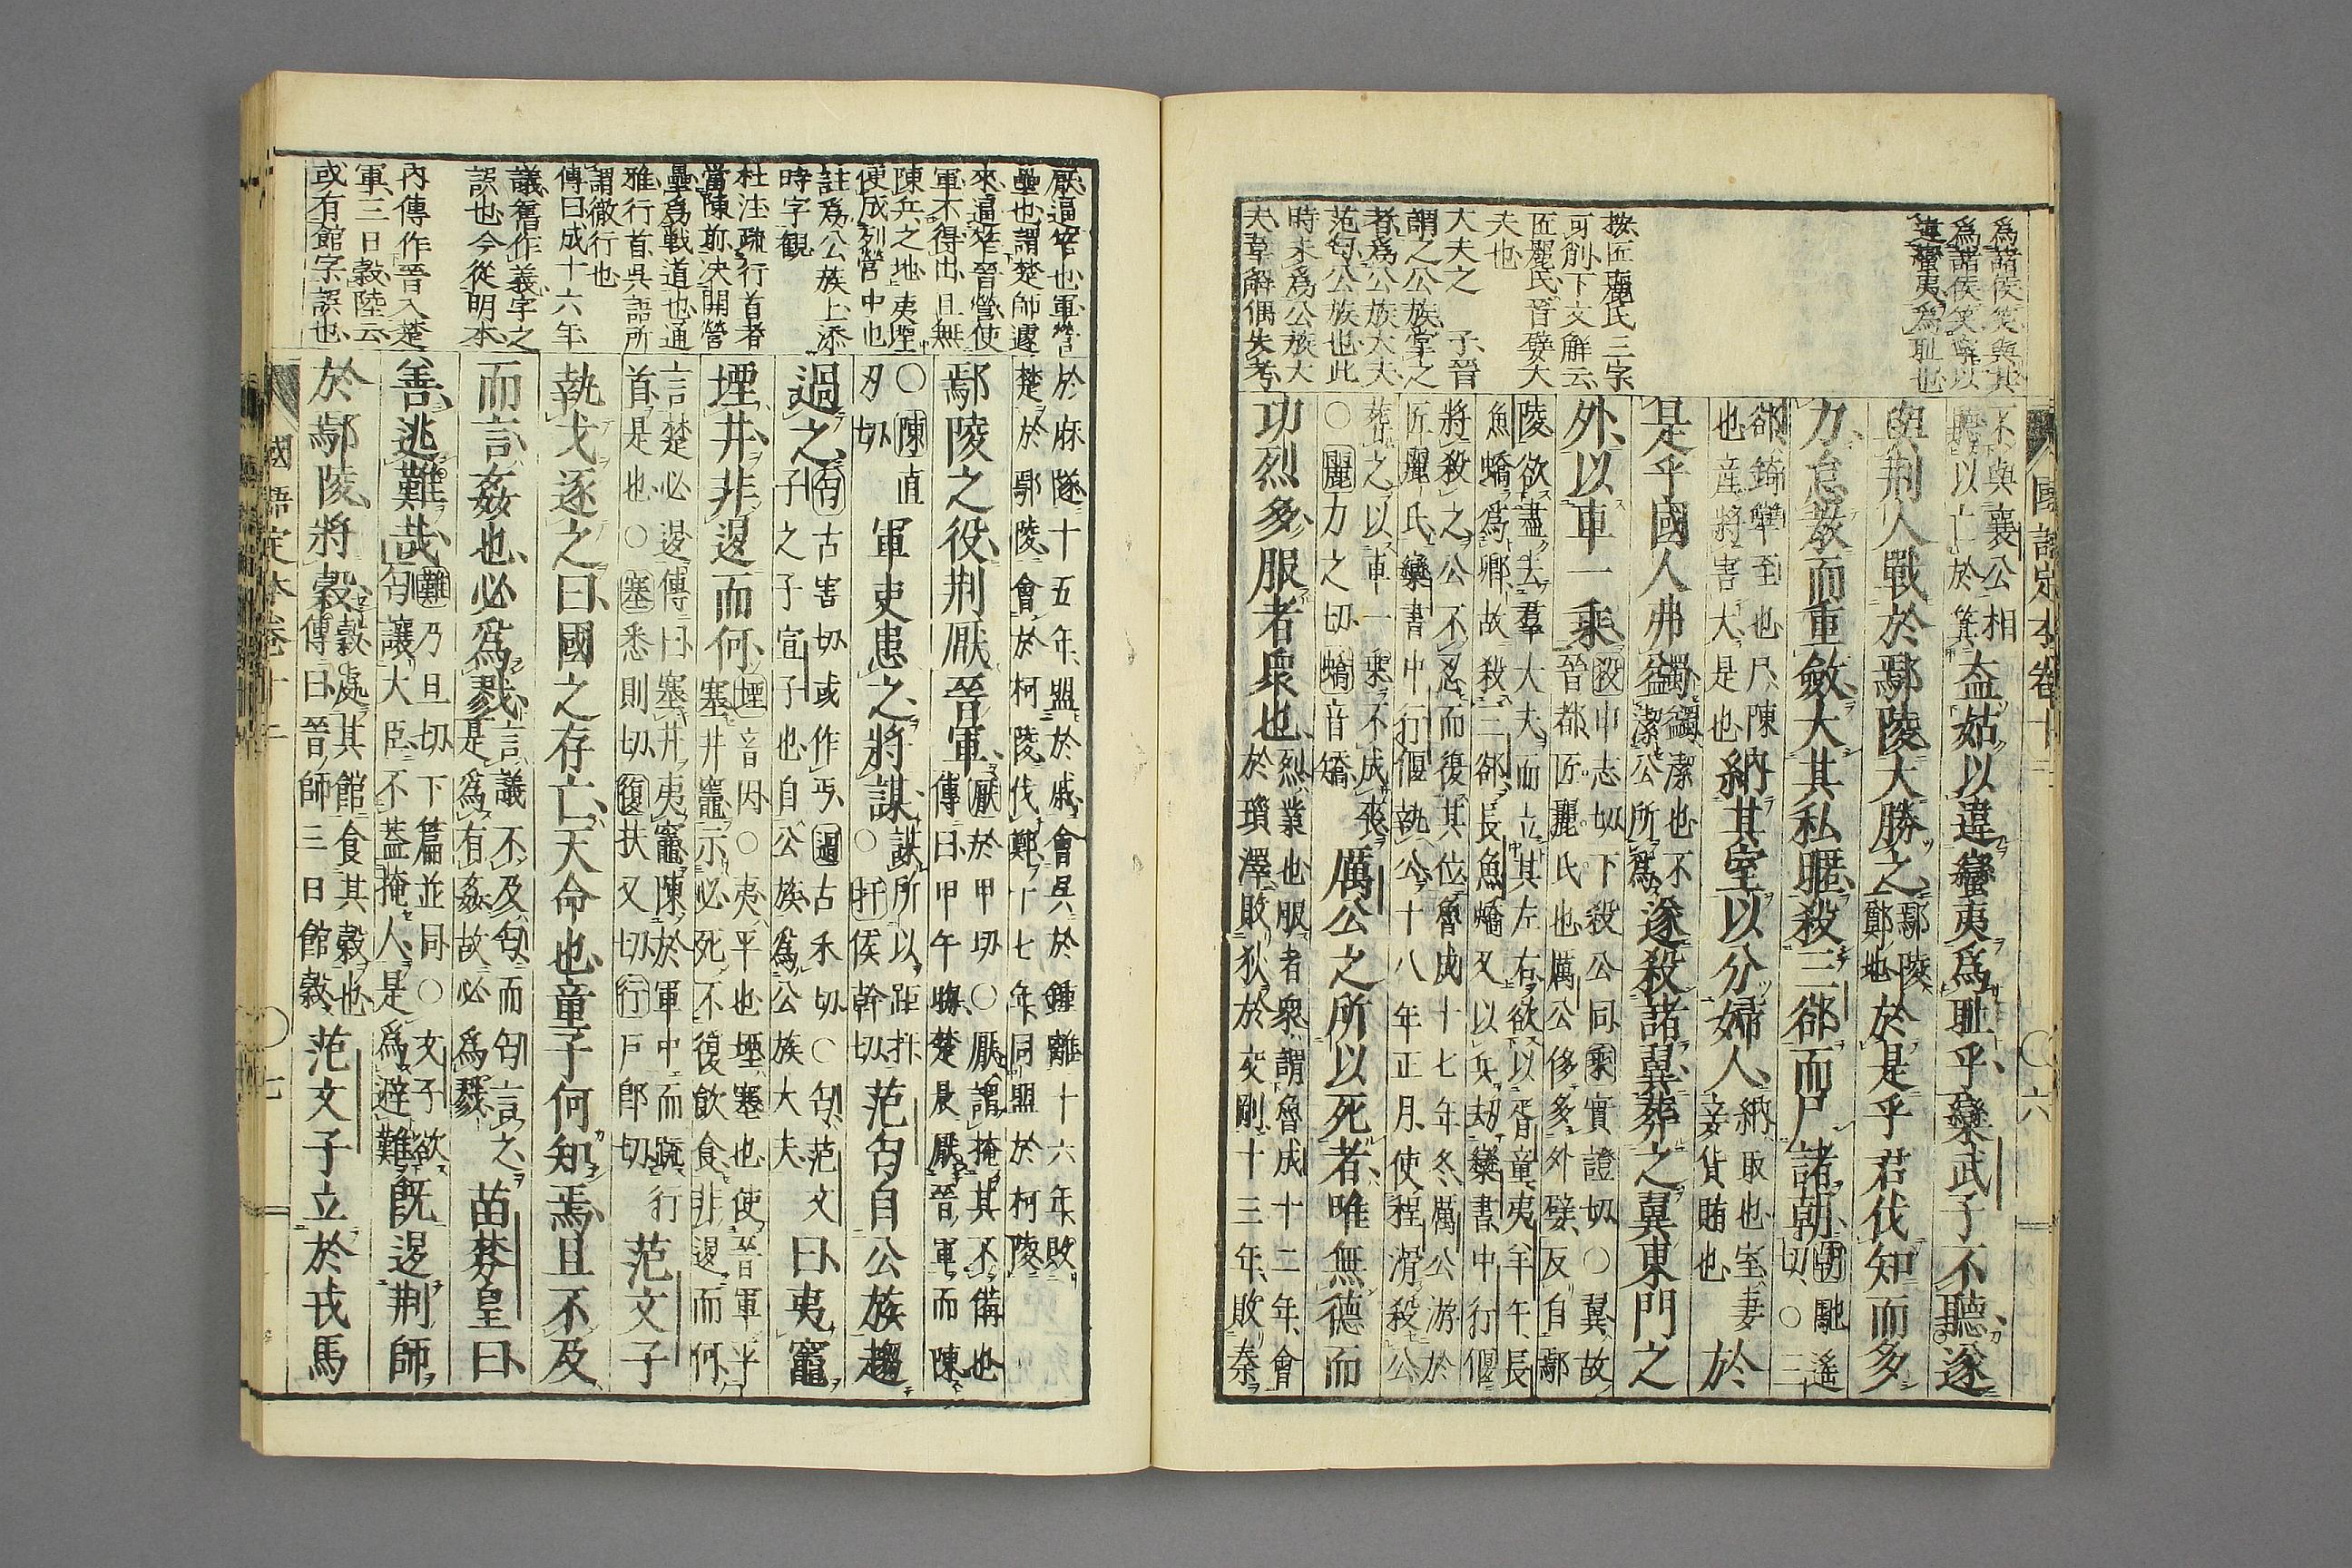 爲諸侯笑與其
爲諸侯笑寧以
違蠻夷爲耻也
按匠麗氏三字
可削下文解云
匠麗氏晉嬖大
夫也
大夫之子晉
謂之公族掌之
者爲公族大夫
范匄公族也此
時未爲公族大
夫韋解偶失考
國語定本卷十二
〇六
不與襄公相
聽以亡於箕
盍姑以違蠻夷爲耻乎欒武子不聽遂
與荆人戰於鄢陵大勝之
鄢陵
鄭地
於是乎君伐知而多
力怠教而重斂大其私暱殺三郤而尸諸朝
朝馳遥
切〇三
郤錡犨至也尸陳
也産將害大是也
納其室以分婦人
納取也室妻
妾貨賄也
於
是乎國人弗蠲
蠲蠲潔也不
蠲潔公所爲
遂殺諸翼葬之翼東門之
外以車一乘
殺申志切下殺公同乘實證切〇翼故
晉都匠麗氏也厲公侈多外嬖反自鄢
陵欲盡去羣大夫而立其左右欲以胥童夷羊午長
魚蟜爲卿故殺三郤長魚蟜又以兵劫欒書中行偃
將殺之公不忍而復其位魯成十七年冬厲公游於
匠麗氏欒書中行偃執公十八年正月使程滑殺公
葬之以車一乘不成喪
〇麗力之切蟜音矯
厲公之所以死者唯無德而
功烈多服者衆也
烈業也服者衆謂魯成十二年會
於瑣澤敗狄於交剛十三年敗秦
厭逼笮也軍營
壘也謂楚師遽
來逼笮晉營使
軍不得出且無
陳兵之地夷堙
便成列營中也
註爲公族上添
時字觀
杜注疏行首者
當陳前決開營
壘爲戰道也通
雅行首吳語所
謂徹行也
傳曰成十六年
議舊作義字之
誤也今從明本
內傳作晉入楚
軍三日穀陸云
或有館字誤也
於麻隧十五年盟於戚會吳於鍾離十六年敗
楚於鄢陵會於柯陵伐鄭十七年同盟於柯陵
鄢陵之役荆厭晉軍
厭於甲切〇厭謂掩其不備也
傳曰甲午晦楚晨厭晉軍而陳
〇陳直
刃切
軍吏患之將謀
謀所以距扞
〇扞侯幹切
范匄自公族趨
過之
匄古害切或作丐過古禾切〇匄范文
子之子宣子也自公族爲公族大夫
曰夷竈
堙井非退而何
堙音因〇夷平也堙塞也使晉軍平
塞井竈示必死不復飲食非退而何
言楚必退傳曰塞井夷竈陳於軍中而疏行
首是也〇塞悉則切復扶又切行戶郎切
范文子
執戈逐之曰國之存亡天命也童子何知焉且不及
而言姦也必爲戮
言議不及匄而匄言之
是爲有姦故必爲戮
苗棼皇曰
善逃難哉
難乃旦切下篇並同〇文子欲
匄讓大臣不蓋掩人是爲避難
既退荆師
於鄢陵將穀
穀處其館食其穀也
傳曰晉師三日館穀
范文子立於戎馬
國語定本卷十二
〇七